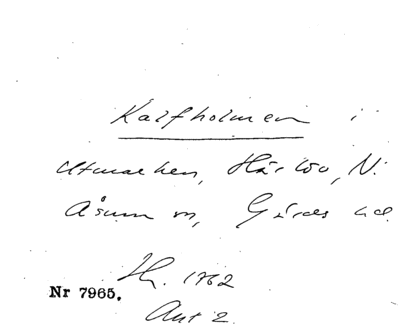 Kalfholmen i
Utmarken, Härlöv, N.
Åsum sn, Gärds hd.
Hr. 1762
Nr 7965.
Akt 2.